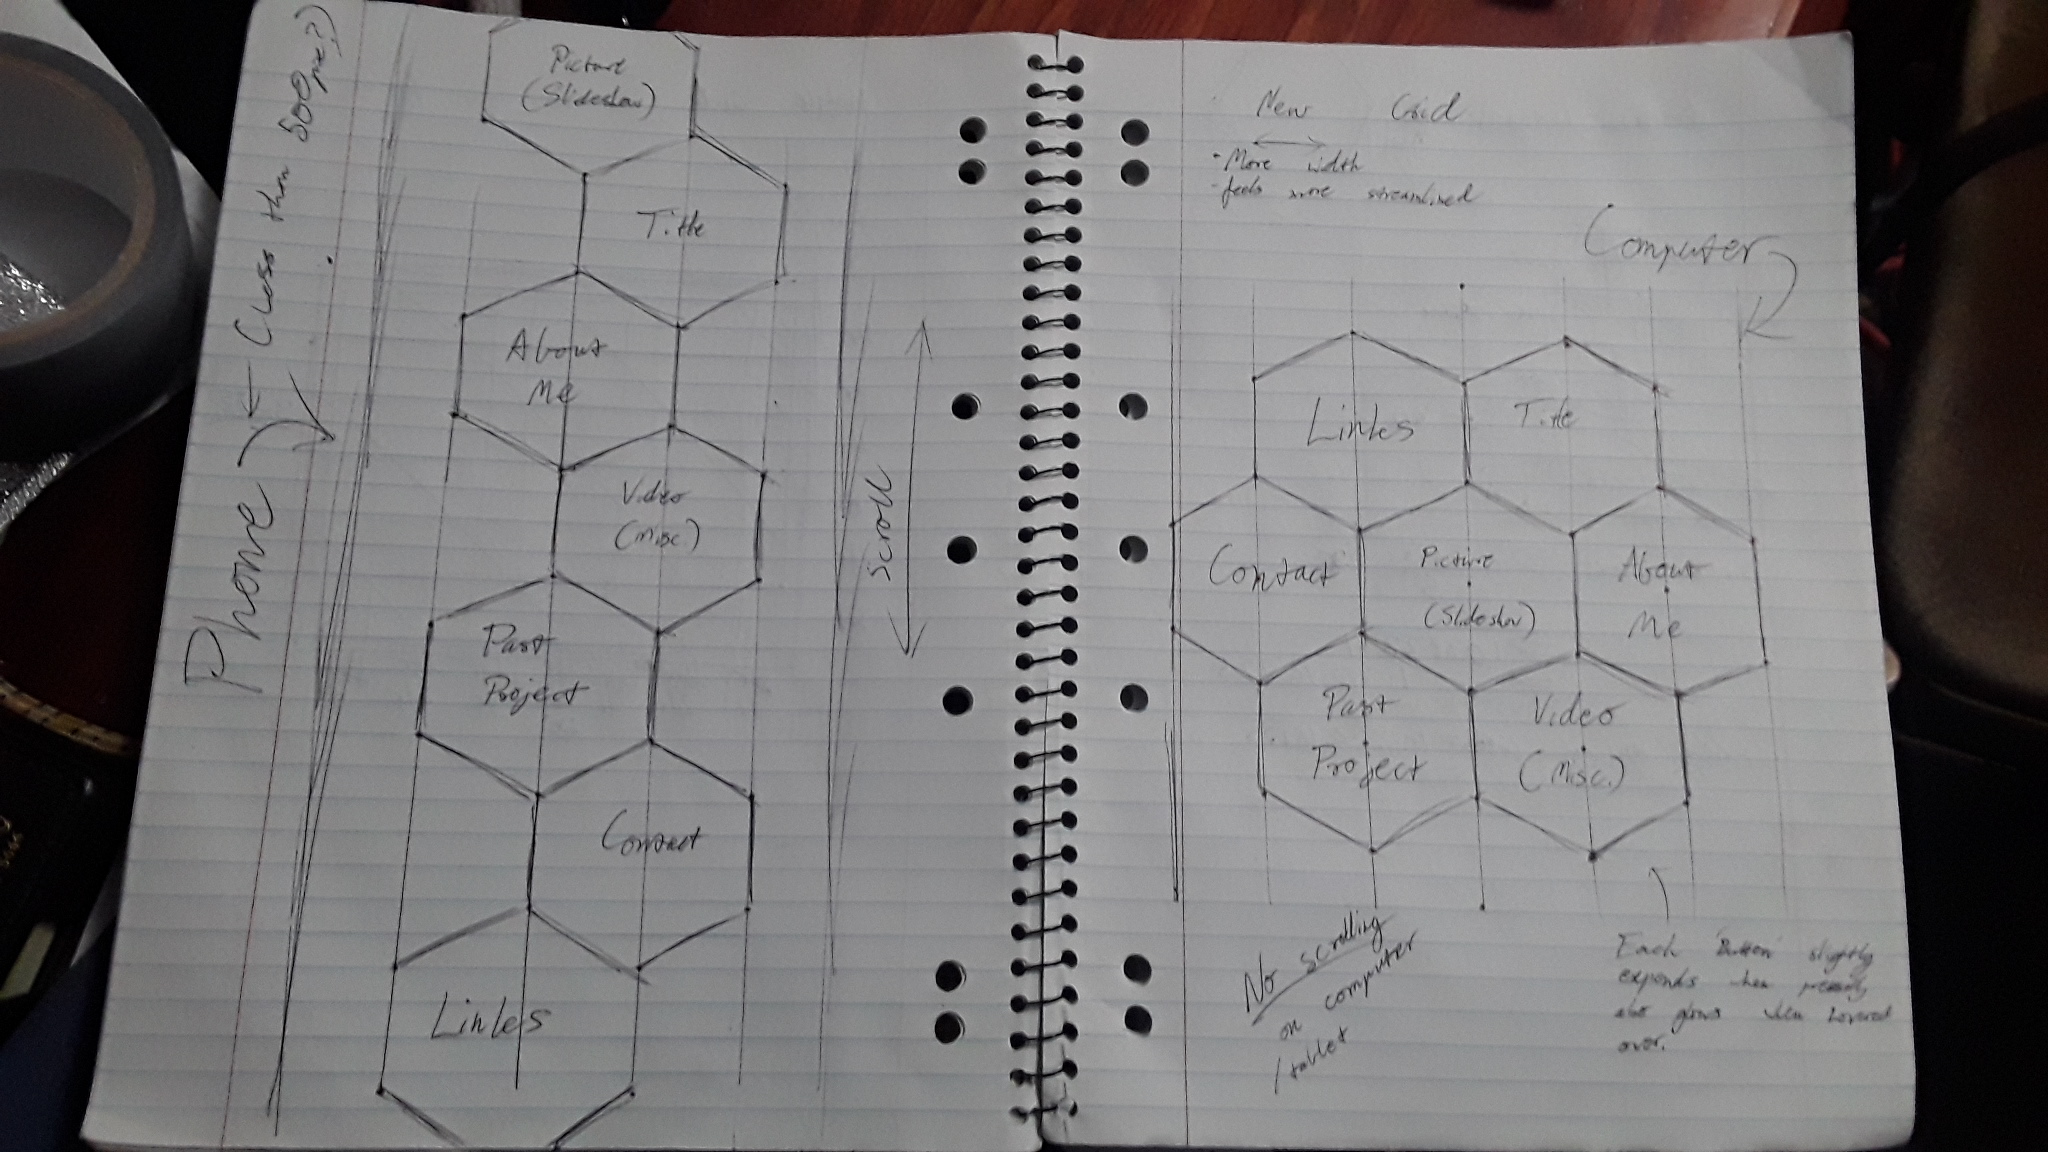 Phone
(Less than 500px?)
Picture
(Slideshow)
Title
About
Me
Video
(Misc.)
Past
Project
Contact
Links
Scroll
New Grid
- More width
- feels more streamlined
Computer
Links
Title
Contact
Picture
(Slideshow)
About
Me
Past
Project
Video
(Misc.)
No scrolling
on computer
/tablet
Each 'Button' slightly
expands when
also glows when hovered
over.